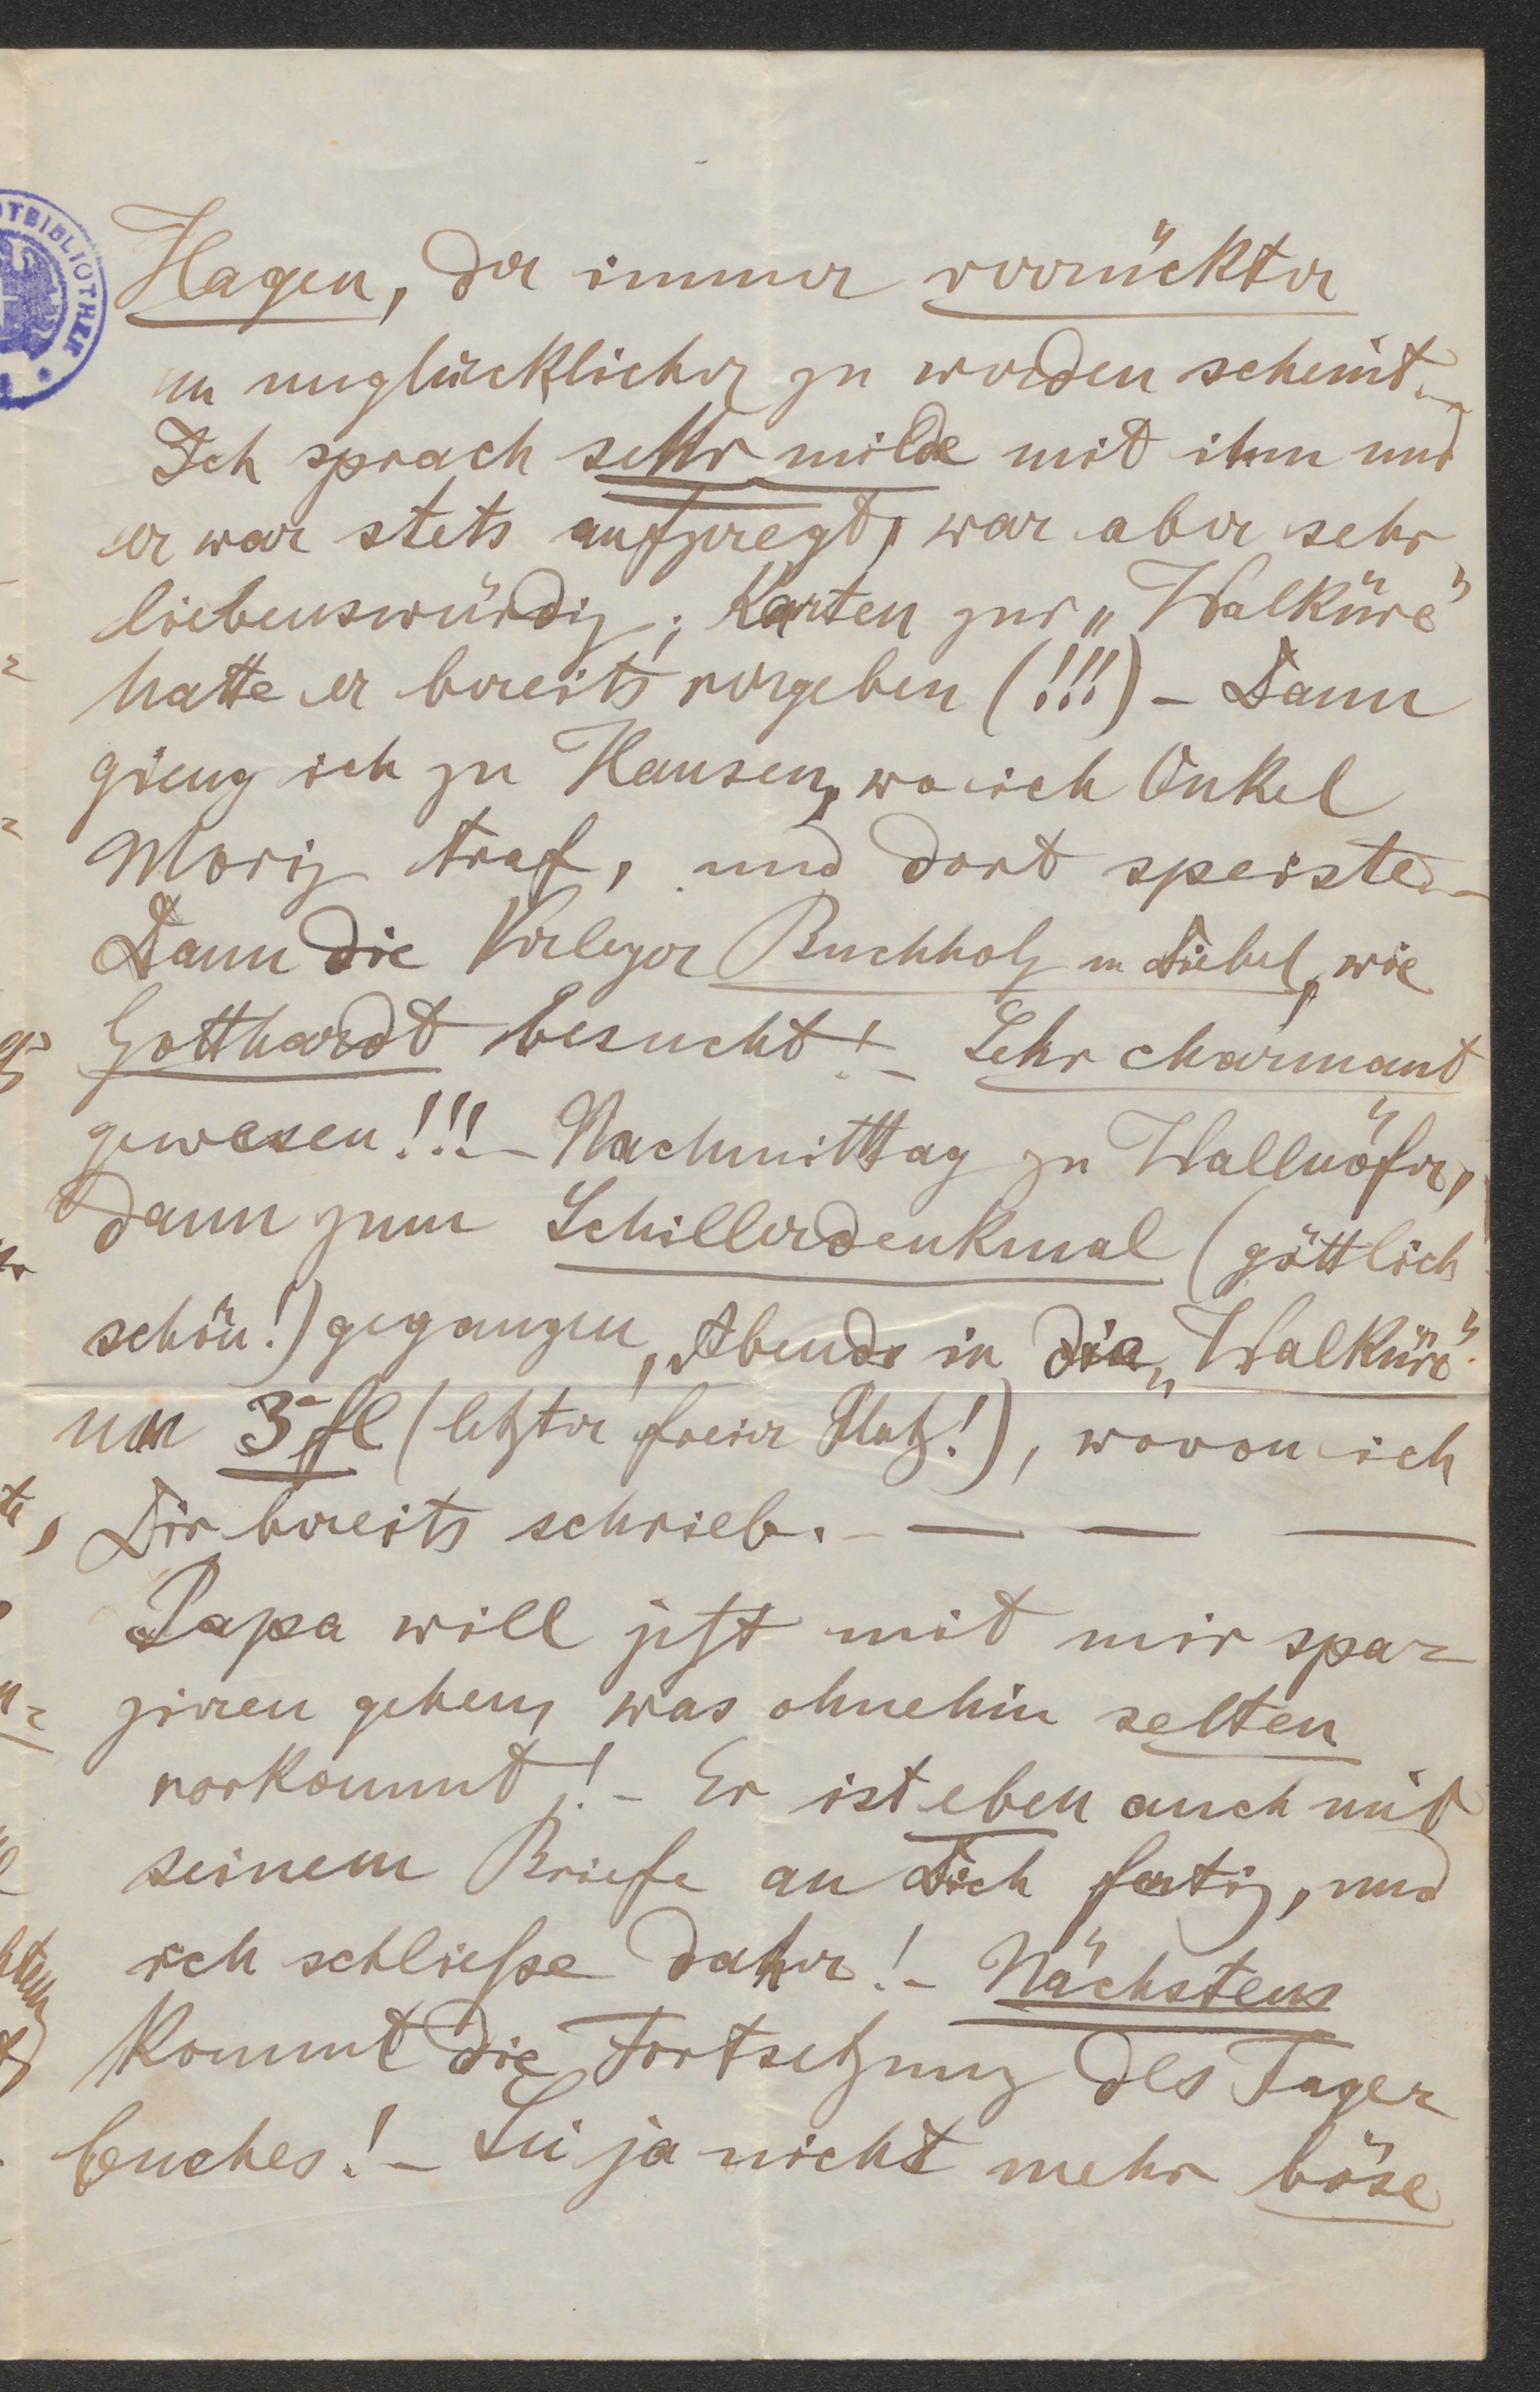 OTBIBLIOTHEK
Hagen, der immer verrückter
u unglücklicher zu werden scheint.
Ich sprach sehr milde mit ihm und
er war stets aufgeregt, war aber sehr
liebenswürdig; Karten zur „Walküre"
hatte er bereits vergeben (!!!) – Dann
gieng ich zu Hausen, wo ich Onkel
Moriz traf, und dort speiste. –
Dann die Verleger Buchholz u Diebel, wie
Gotthardt besucht! – Sehr charmant
gewesen!!! – Nachmitttag zu Wallnöfer,
dann zum Schillerdenkmal (göttlich
schön!) gegangen, Abends in die „Walküre"
um 3 fl (letzter freier Platz!), wovon ich
Dir bereits schrieb. – — — —
Papa will jetzt mit mir spa=
ziren gehen, was ohnehin selten
vorkommt! – Er ist eben auch mit
seinem Briefe an Dich fertig, und
ich schließe daher! – Nächstens
kommt die Fortsetzung des Tage=
buches! – Sei ja nicht mehr böse